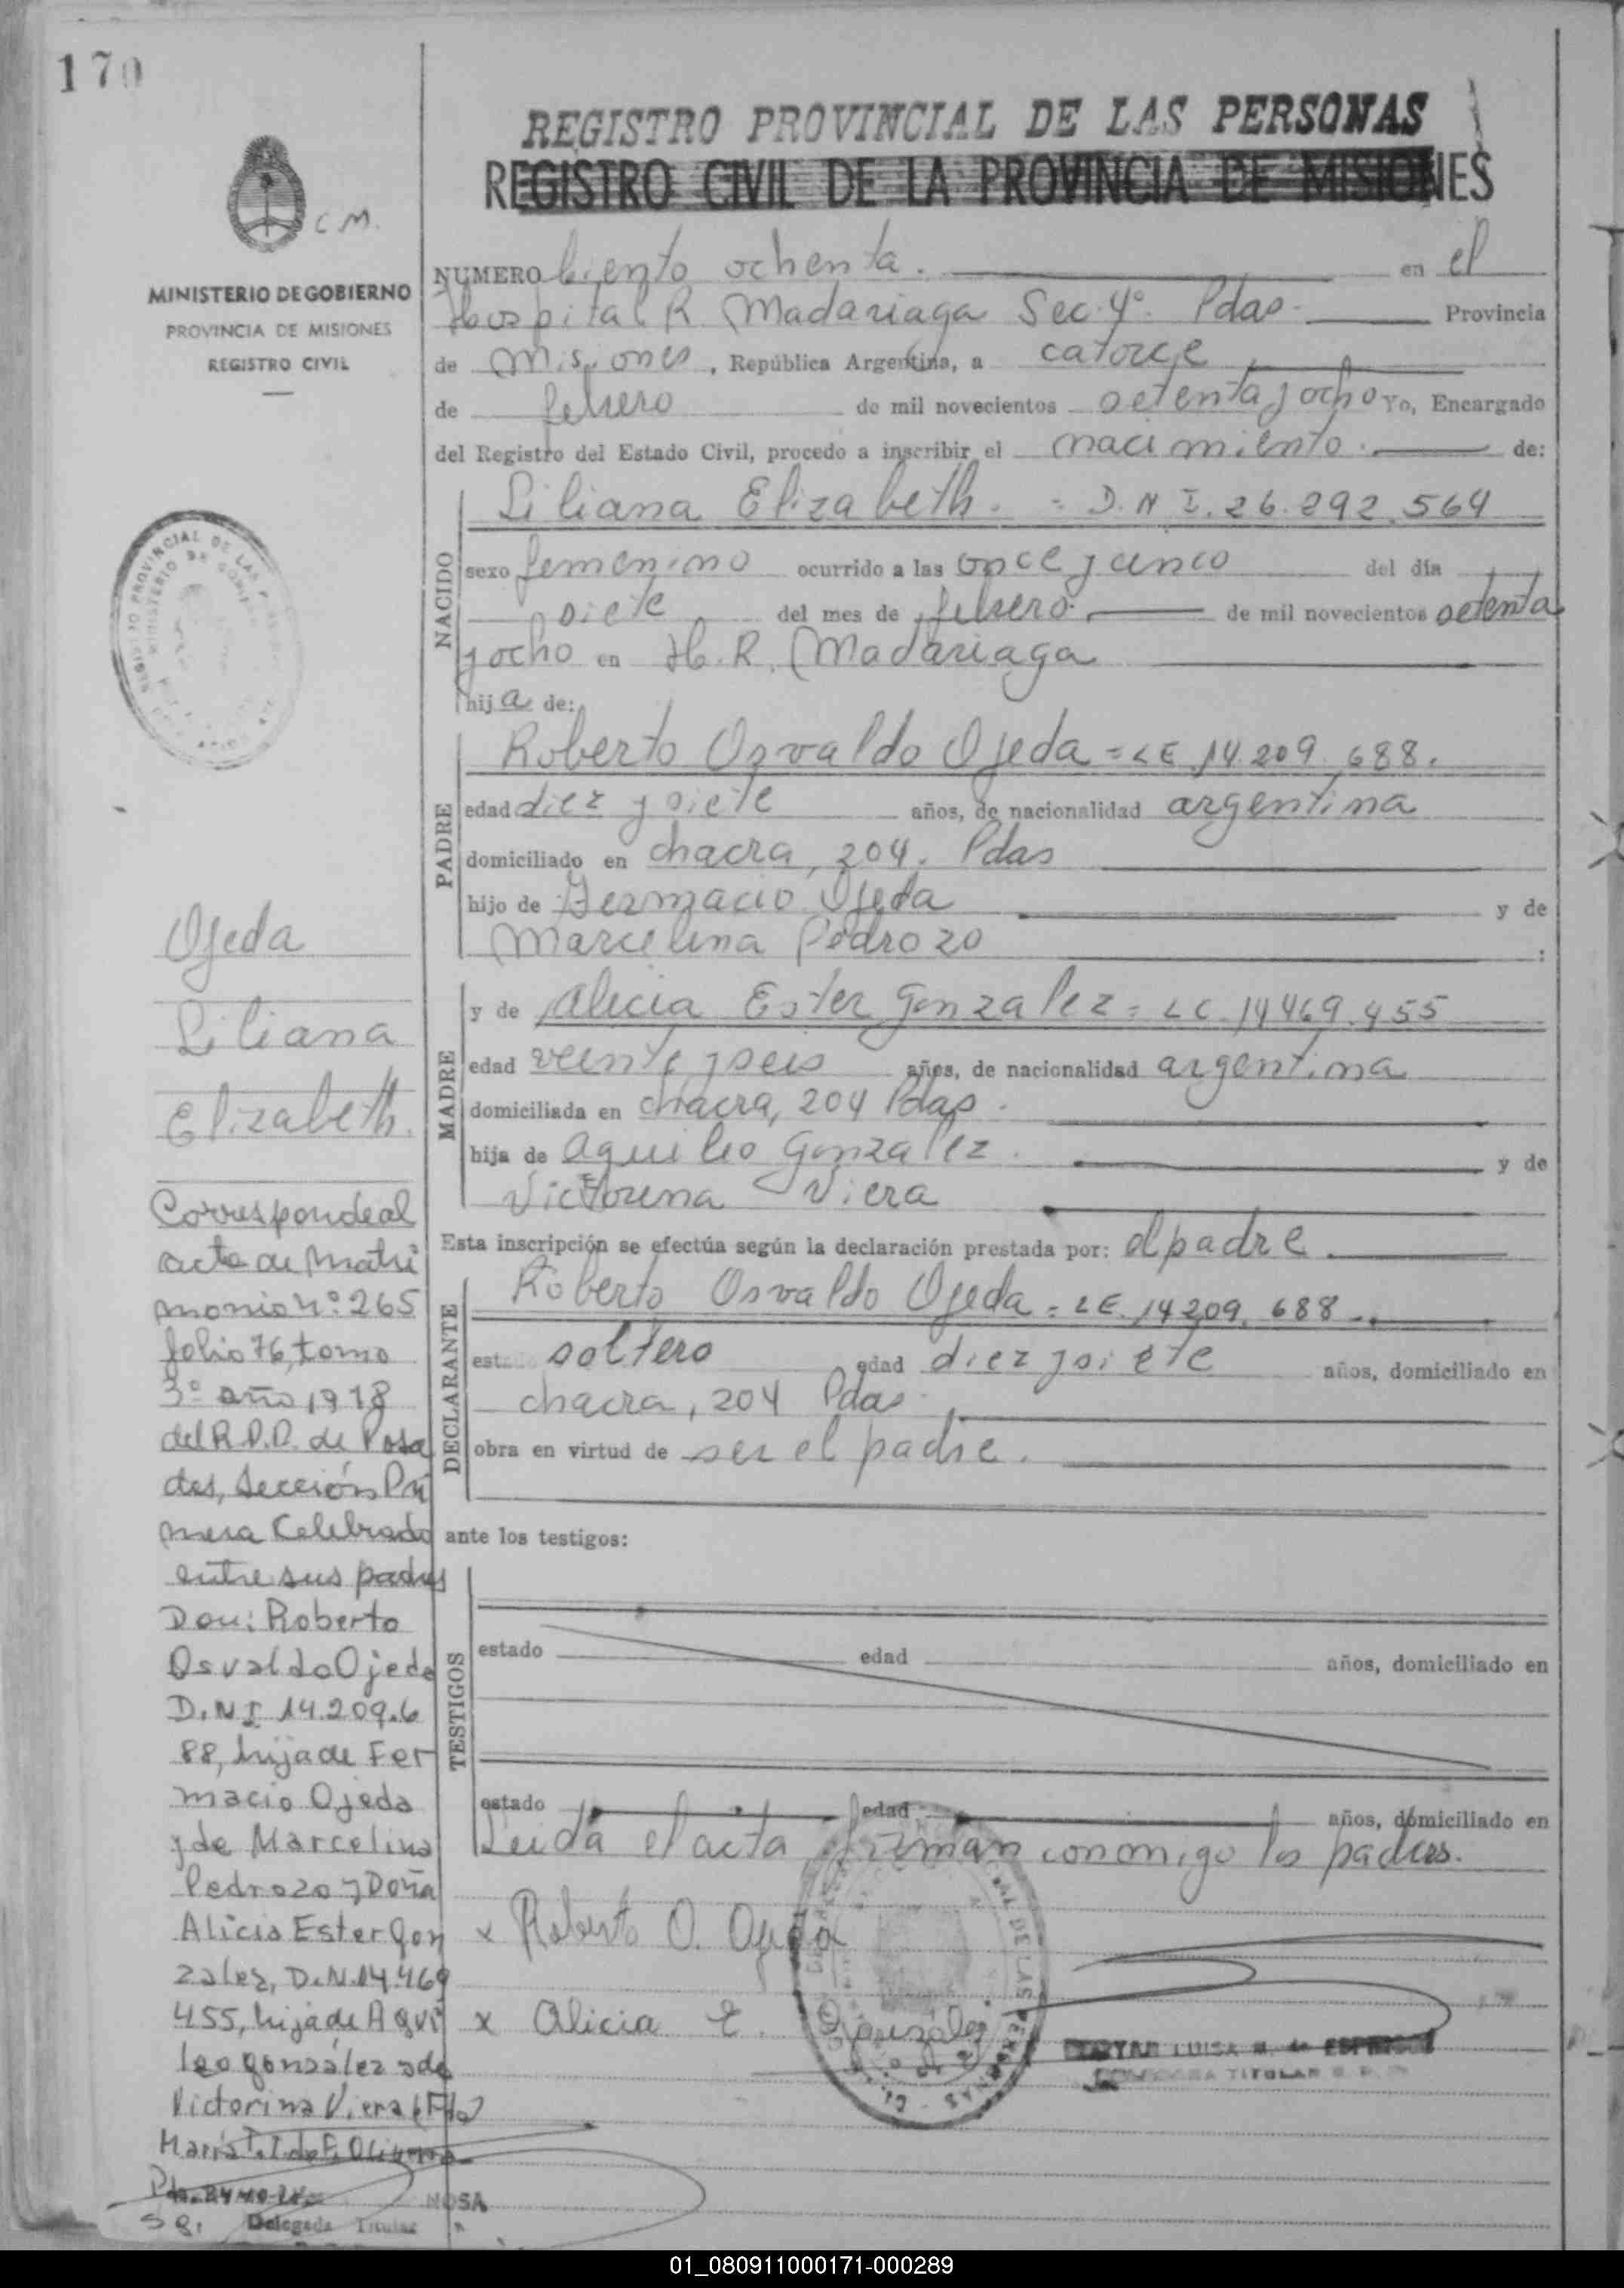 170
REGISTRO PROVINCIAL DE LAS PERSONAS
REGISTRO CIVIL DE LA PROVINCIA DE MISIONES
C M.
MINISTERIO DE GOBIERNO
PROVINCIA DE MISIONES
REGISTRO CIVIL
NUMERO Ciento ochenta. en el
Hospital R. Madariaga Sec. 4° Pdas. Provincia
de Misiones, República Argentina, a catorce
de febrero de mil novecientos setenta y ocho Yo, Encargado
del Registro del Estado Civil, procedo a inscribir el nacimiento. de:
NACIDO
Liliana Elizabeth. = D.N I. 26.292.564
sexo femenino ocurrido a las once y cinco del día
siete del mes de febrero. de mil novecientos setenta
y ocho en H. R. Madariaga
hija de:
PADRE
Roberto Osvaldo Ojeda = LE. 14.209.688.
edad diez y siete años, de nacionalidad argentina
domiciliado en chacra, 204. Pdas
hijo de Fermacio Ojeda y de
Marcelina Pedrozo :
MADRE
y de Alicia Ester Gonzalez = LC. 14469.455
edad veinte y seis años, de nacionalidad argentina
domiciliada en chacra, 204 Pdas.
hija de Aquileo Gonzalez. y de
Victorina Viera
Esta inscripción se efectúa según la declaración prestada por: el padre.
DECLARANTE
Roberto Osvaldo Ojeda = LE. 14209.688.
est soltero edad diez y siete años, domiciliado en
chacra, 204 Pdas.
obra en virtud de ser el padre.
ante los testigos:
TESTIGOS
estado edad años, domiciliado en
estado edad años, domiciliado en
Leida el acta firman conmigo los padres.
x Roberto O. Ojeda
x Alicia E. González
LUISA
TITULAR
Ojeda
Liliana
Elizabeth.
Corresponde al
acta de Matri
monio n° 265
folio 76, tomo
3° año 1978
del R.P.P. de Posa
das, Sección Pri
mera Celebrado
entre sus padres
Don: Roberto
Osvaldo Ojeda
D.N.I 14.209.6
88, hijo de Fer
macio Ojeda
y de Marcelina
Pedrozo y Doña
Alicia Ester Gon
zalez, D.N.14.469
455, hija de Aqui
leo González y de
Victorina Viera (Fdo)
Delegada Titular
NOSA
01_080911000171-000289